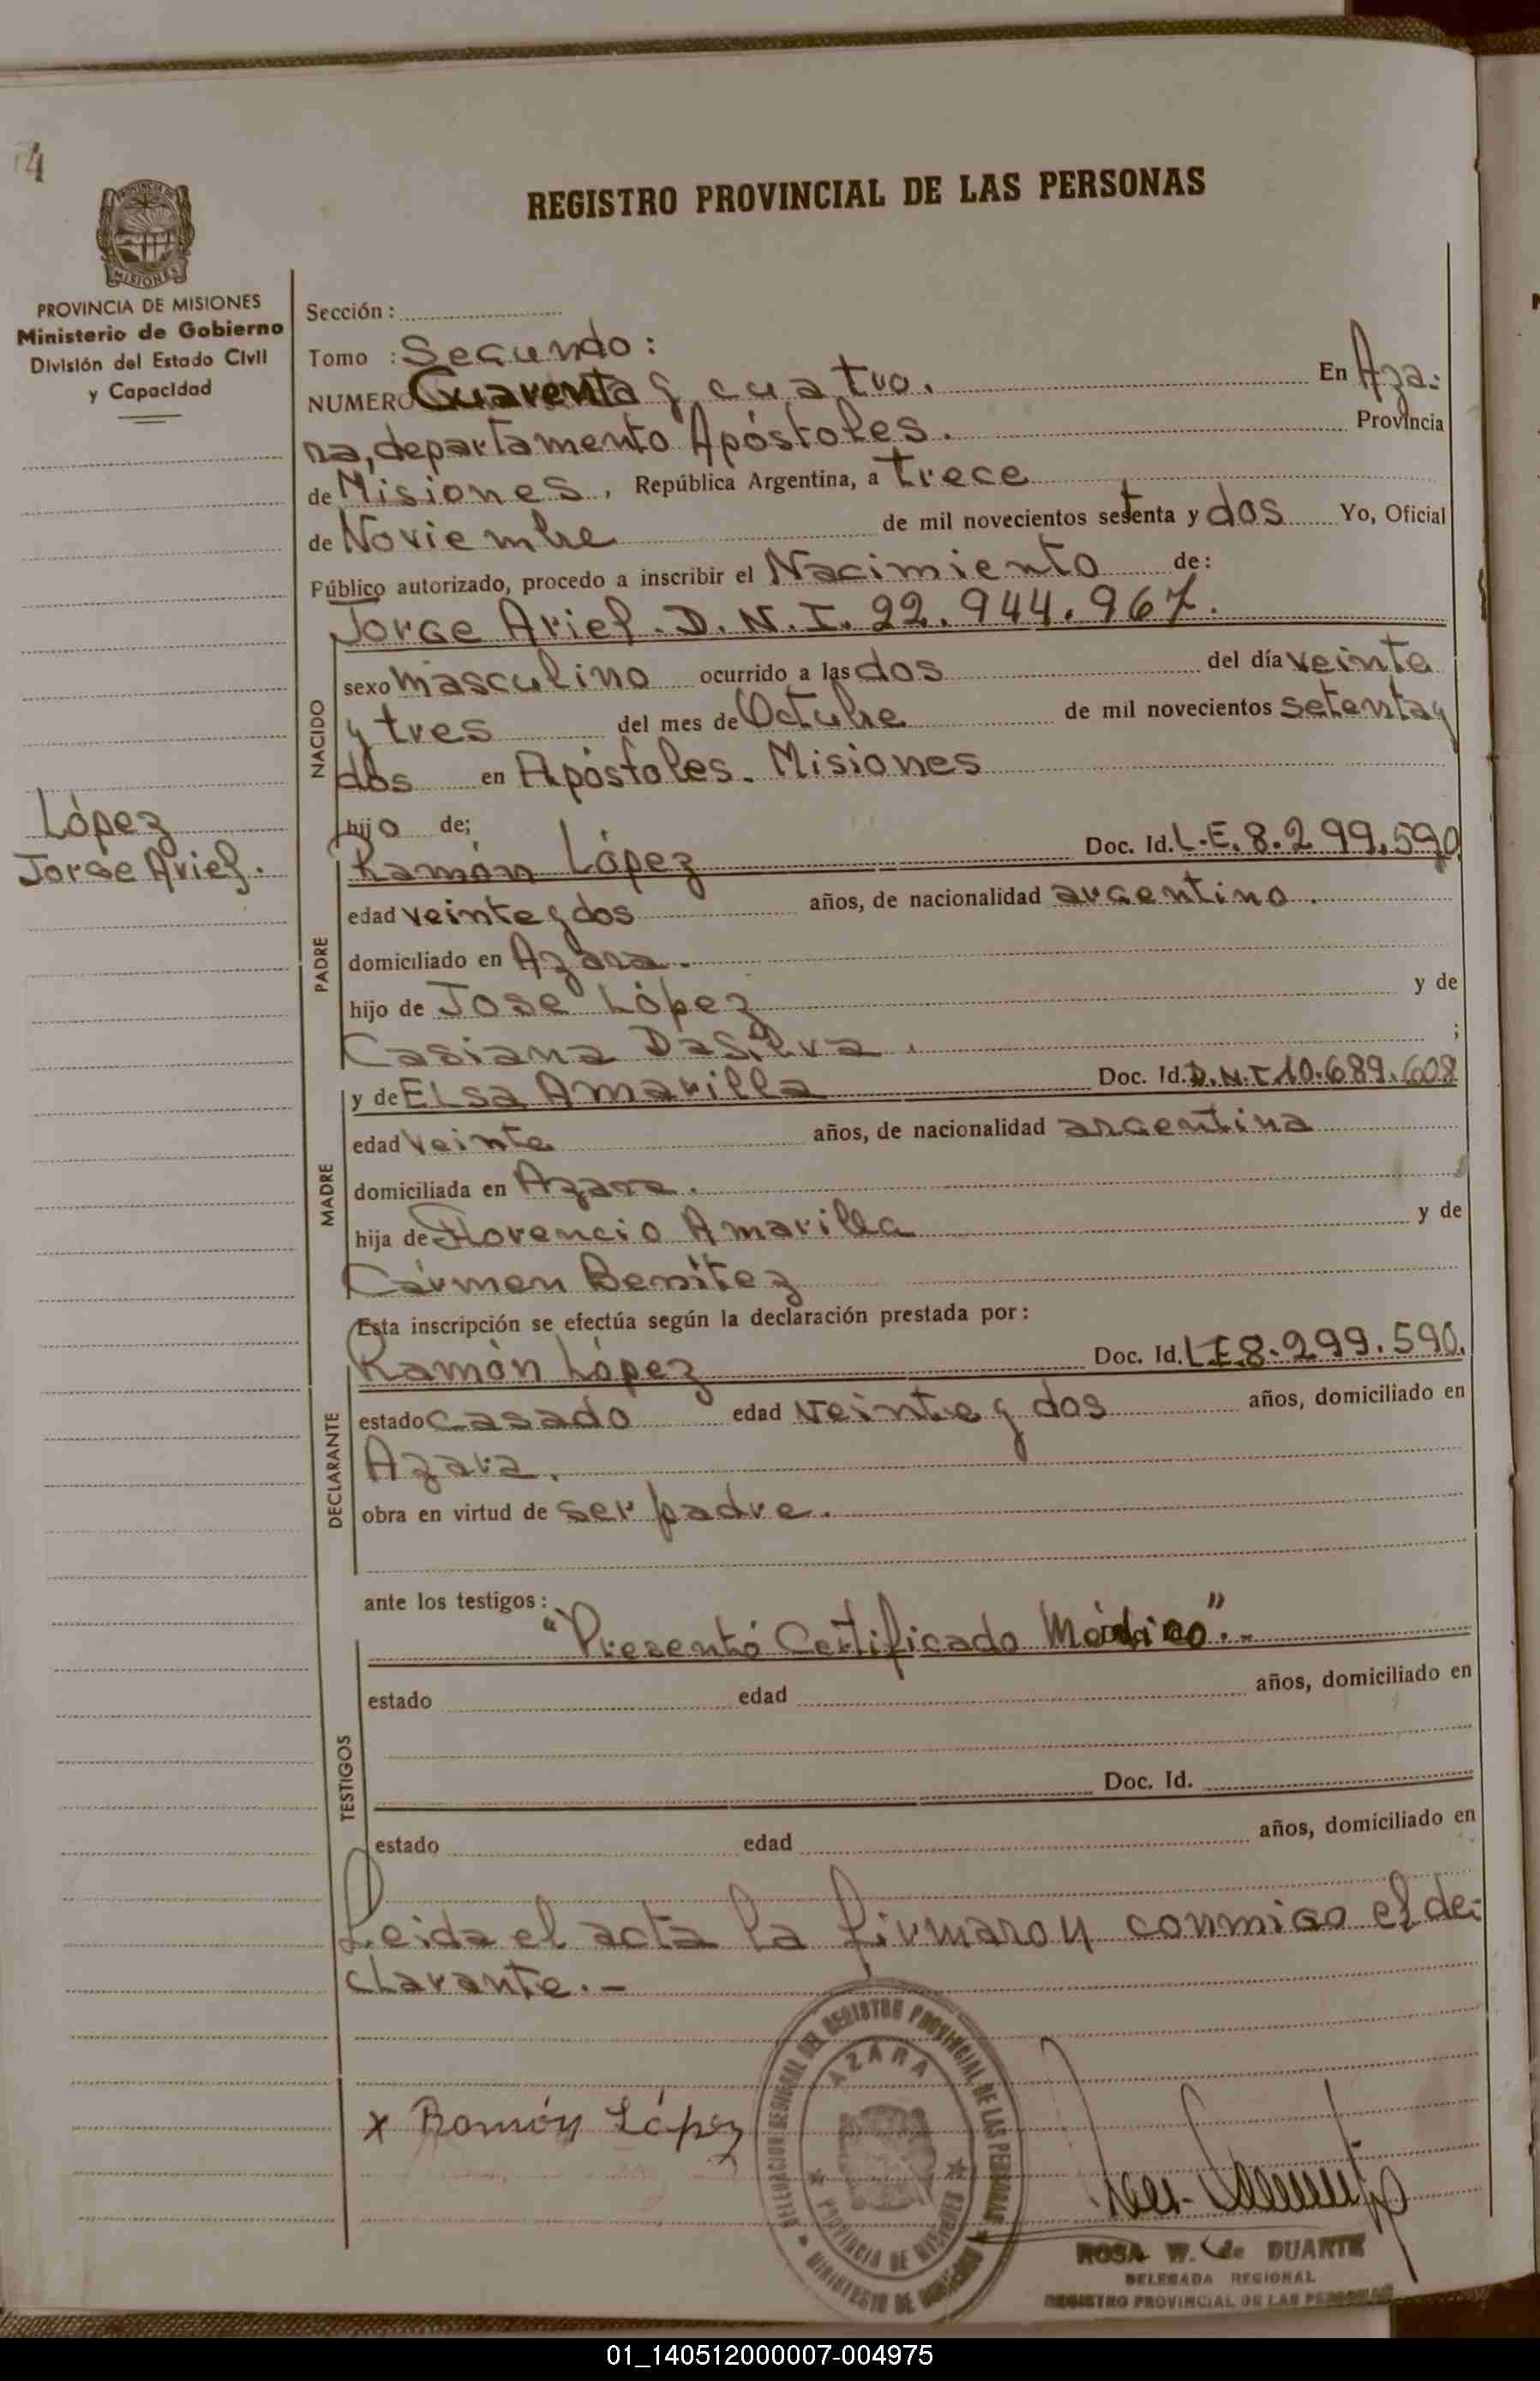 4
REGISTRO PROVINCIAL DE LAS PERSONAS
PROVINCIA DE
MISIONES
PROVINCIA DE MISIONES
Ministerio de Gobierno
División del Estado Civil
y Capacidad
Sección:
Tomo : Segundo:
NUMERO Cuarenta y cuatro. En Aza:
ra, departamento Apóstoles. Provincia
de Misiones, República Argentina, a trece
de Noviembre de mil novecientos setenta y dos Yo, Oficial
Público autorizado, procedo a inscribir el Nacimiento de:
Jorge Ariel. D.N.I. 22.944.967.
NACIDO
sexo masculino ocurrido a las dos del día veinte
y tres del mes de Octubre de mil novecientos setenta y
dos en Apóstoles. Misiones
López
Jorge Ariel.
hijo de;
PADRE
Ramón López Doc. Id. L.E. 8.299.590
edad veinte y dos años, de nacionalidad argentino.
domiciliado en Azara.
hijo de José López y de
Casiana DaSilva. ;
MADRE
y de Elsa Amarilla Doc. Id. D.N.I 10.689.608
edad veinte años, de nacionalidad argentina
domiciliada en Azara.
hija de Florencio Amarilla y de
Cármen Benítez
Esta inscripción se efectúa según la declaración prestada por:
DECLARANTE
Ramón López Doc. Id. L.E 8.299.590.
estado casado edad veinte y dos años, domiciliado en
Azara.
obra en virtud de ser padre.
ante los testigos:
TESTIGOS
"Presentó Certificado Médico".-
estado edad años, domiciliado en
Doc. Id.
estado edad años, domiciliado en
Leida el acta la firmaron conmigo el de:
clarante.-
x Ramón López
DELEGACION REGIONAL DEL REGISTRO PROVINCIAL DE LAS PERSONAS
AZARA
PROVINCIA DE MISIONES
MINISTERIO DE GOBIERNO
ROSA W. de DUARTE
DELEGADA REGIONAL
REGISTRO PROVINCIAL DE LAS PERSONAS
01_140512000007-004975